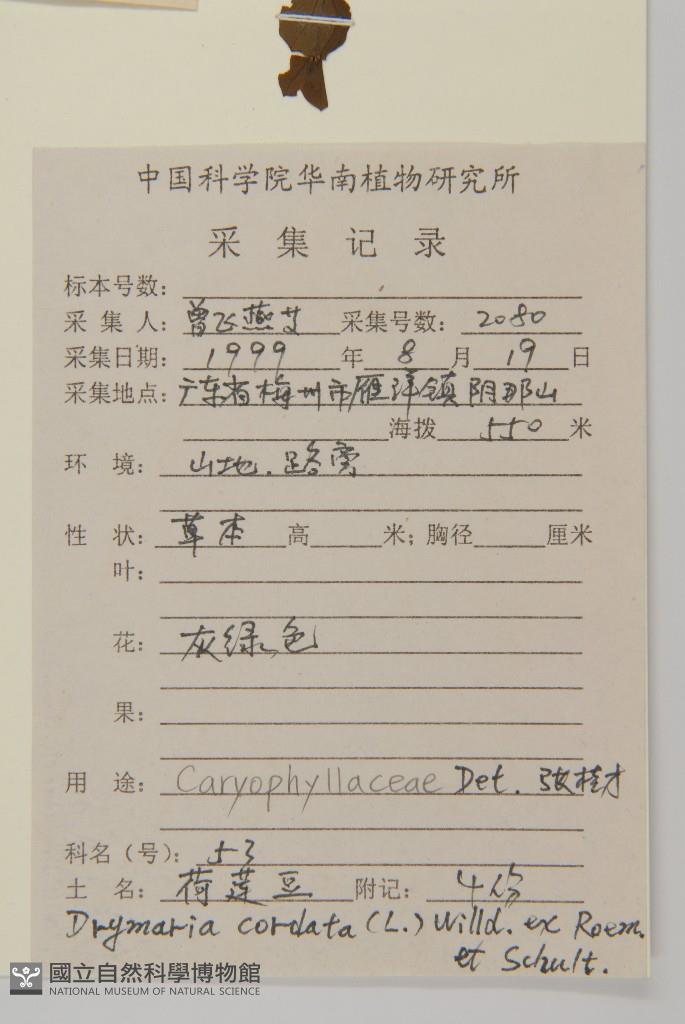 中国科学院华南植物研究所
采集记录
标本号数:
采集人: 曾飞燕艾 采集号数: 2080
采集日期: 1999 年 8 月 19 日
采集地点: 广东省梅州市雁洋镇阴那山
海拨 550 米
环境: 山地.路旁
性状: 草本 高 米; 胸径 厘米
叶:
花: 灰绿色
果:
用途: Caryophyllaceae Det. 张桂才
科名(号): 53
土名: 荷莲豆 附记: 4份
Drymaria cordata (L.) Willd. ex Roem.
et Schult.
國立自然科學博物館
NATIONAL MUSEUM OF NATURAL SCIENCE